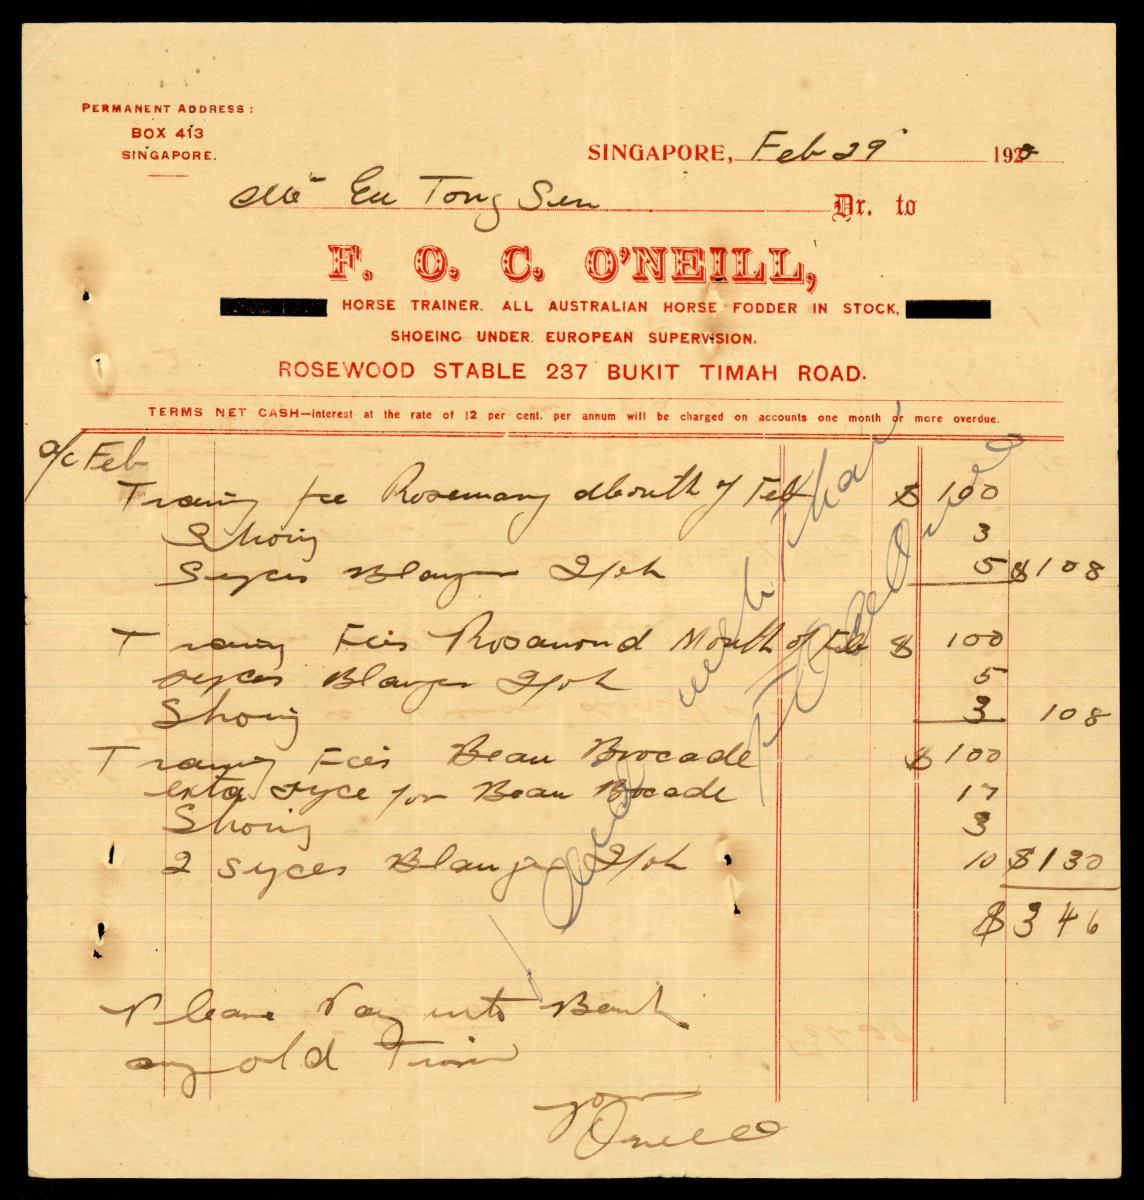 PERMANENT ADDRESS:
BOX 413
SINGAPORE.
SINGAPORE, Feb 29 192
Mr Eu Tong Sen Dr. to
F. O. C. O'NEILL,
HORSE TRAINER. ALL AUSTRALIAN HORSE FODDER IN STOCK,
SHOEING UNDER EUROPEAN SUPERVISION.
ROSEWOOD STABLE 237 BUKIT TIMAH ROAD.
TERMS NET CASH—interest at the rate of 12 per cent. per annum will be charged on accounts one month or more overdue.
a/c Feb
Traning fee Rosemary Month of Feb $ 100
Shoing 3
Syces 5 $108
Traning Fees Rosamond Month of Feb $ 100
syces 5
Shoing 3 108
Traning Fees Beau Brocade $ 100
exta syce for Beau Bocade 17
Shoing 3
2 Syces 10 $130
$346
Please Pay into Bank
any old Time
O'neill
with Thanks